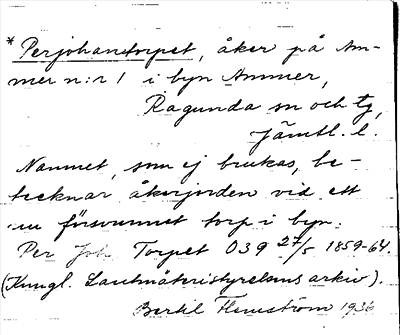 * Perjohantorpet, åker på Am-
mer n:r 1 i byn Ammer,
Ragunda sn och tg,
Jämtl. l.
Namnet, som ej brukas, be-
tecknar åkerjorden vid ett
nu försvunnet torp i byn.
Per Joh Torpet O39 27/5 1859-64.
(Kungl. Lantmäteristyrelsens arkiv).
Bertil Flemström 1936